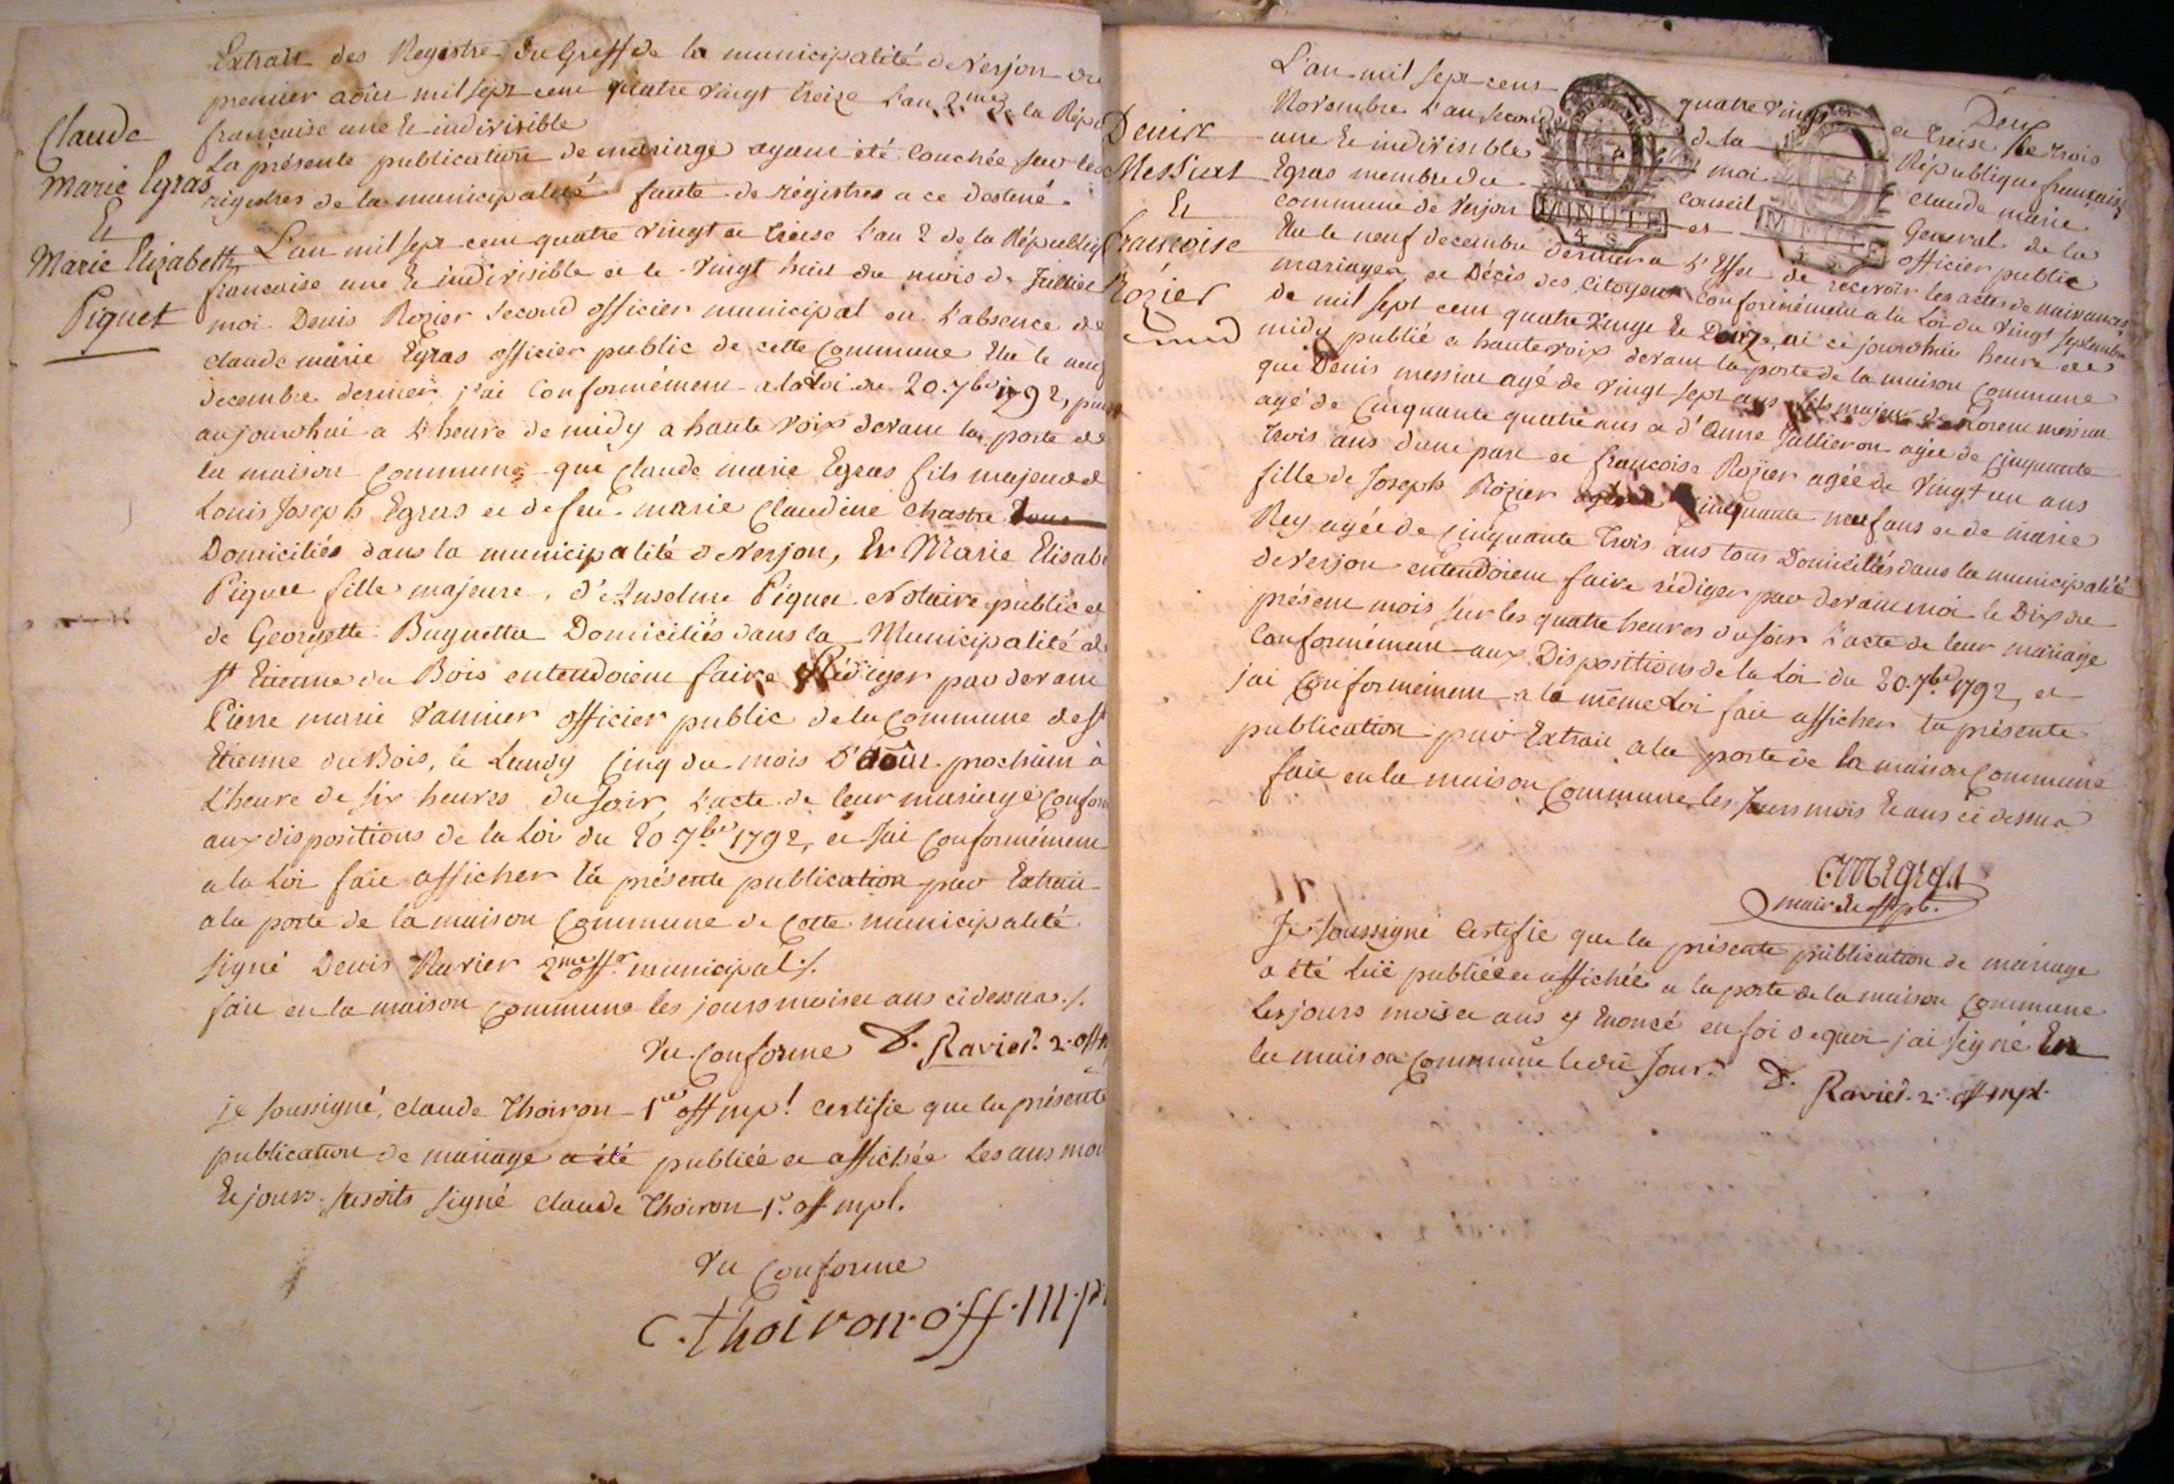 Extrait des Registre du Greff de la municipalité de Verjon du
premier aôut mil sept cent quatre vingt treize L'an 2me de la Répu
francaise une & indivisible
La présente publication de mariage ayant été Couchée sur les
régistres de la municipalité faute de régistres a ce destiné.
Claude
Marie Egras
Et
Marie Elizabeth
Piquet
L'an mil sept cent quatre vingt et treise L'an 2 de la Républiq
francaise une & indivisible et le vingt huit du mois de Juillet
moi Denis Rozier Second officier municipal en L'absence de
Claude marie Egras officier public de cette Commune Elu le neuf
decembre dernier j'ai Conformément a la Loi du 20. 7bre 1792,
aujourdhui a L'heure de midy a haute voix devant la porte de
la maison Commune que Claude marie Egras fils majeur de
Louis Joseph Egras et de feu marie Claudine Chastre
Domiciliés dans la municipalité de Verjon, Et Marie Elisab
Piquet fille majeure, d'Anselme Piquet Notaire public et
de Georgette Buguettu Domiciliés dans la Municipalité de
st Etienne du Bois entendoient faire Rédiger par devant
Pierre marie Vannier officier public de la Commune de st
Etienne du Bois, le Lundy Cinq du mois D'aôut prochain à
L'heure de six heures du Soir L'acte de leur mariage Confor
aux dispositions de la Loi du 20. 7bre 1792, et J'ai Conformément
a la Loi fait afficher la présente publication par Extrait
a la porte de la maison Commune de Cette municipalité
signé Denis Ravier 2me offr municipal ./.
fait en la maison Commune les jours mois et ans ci dessus ./.
Vu Conforme D. Ravier. 2. off m
je soussigné, claude Thoiron 1er off mpl certifie que la présente
publication de mariage a été publiée et affichée Les ans moi
& jours susdits signé claude Thoiron 1r. off mpl.
Vu Conforme
C. thoiron off. m. p
Denis
Messiat
Et
francoise
Rozier
L'an mil sept cens quatre vingt et treise le trois
Deux
Novembre L'an Second de la République francaise
une & indivisible moi Claude marie
Egras membre du Conseil General de la
commune de Verjon et officier public
MINUTE
4. S.
Elu le neuf decembre dernier a L'Effet de recevoir les actes de naissances
mariages et Décès des Citoyens Conformément a la Loi du vingt Septembre
de mil sept cent quatre vingt & Douze, ai cejourdhui heure de
midy publié a haute voix devant la porte de la maison Commune
que Denis messiat agé de vingt sept ans fils majeur de Lorent messiat
agé de Cinquante quatre ans et d'Anne Jullieron agée de Cinquante
trois ans d'une part et francoise Rozier agée de vingt un ans
fille de Joseph Rozier agé de Cinquante neuf ans et de marie
Rey agée de Cinquante Trois ans tous Domiciliés dans la municipalité
de Verjon entendoient faire rédiger par devant moi le Dix du
présent mois sur les quatre heures du soir L'acte de leur mariage
Conformément aux Dispositions de la Loi du 20. 7bre 1792, et
j'ai Conformément a la même Loi fait afficher la présente
publication par Extrait a la porte de la maison Commune
fait en la maison Commune les Jours mois & ans ci dessus
CMEgras
maire & off pb.
Je soussigné Certifie que la présente publication de mariage
a été luë publiée et affichée a la porte de la maison Commune
les jours mois et ans y Enoncé en foi de quoi j'ai signé En
la maison Commune ledit Jour. D. Ravier. 2. off mpl.